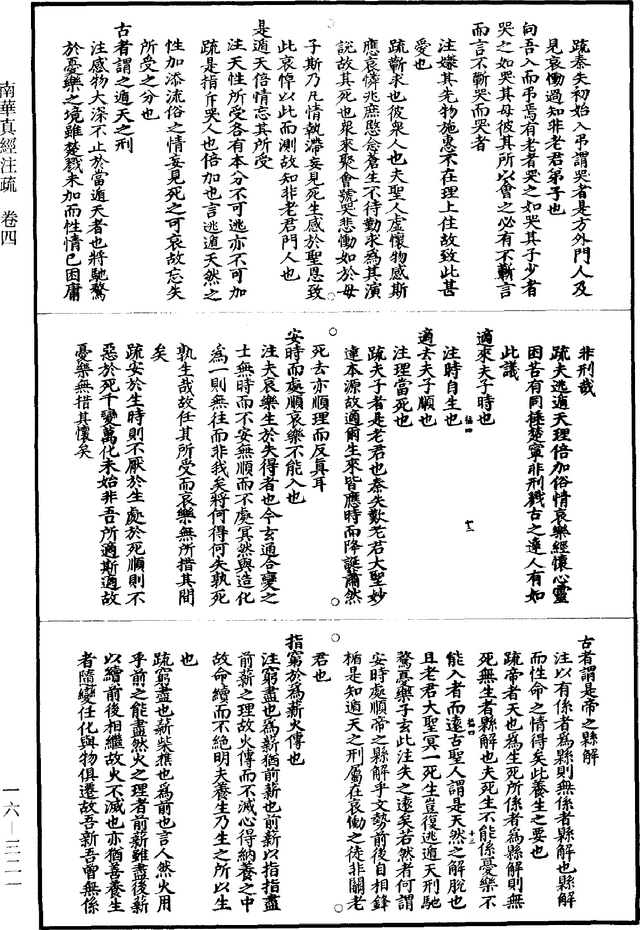 南華真經注疏　卷四
一六—三二一
疏秦失初始入弔謂哭者是方外門人及
見哀慟過知非老君弟子也
向吾入而弔焉有老者哭之如哭其子少者
哭之如哭其母彼其所以會之必有不蘄言
而言不蘄哭而哭者
注嫌其先物施惠不在理上住故致此甚
愛也
疏蘄求也彼衆人也夫聖人虛懷物感斯
應哀憐兆庶愍念蒼生不待勤求為其演
説故其死也衆來聚會號哭悲慟如於母
子斯乃凡情執滯妄見死生感於聖恩致
此哀悼以此而測故知非老君門人也
是遁天倍情忘其所受
注天性所受各有本分不可逃亦不可加
疏是指斥哭人也倍加也言逃遁天然之
性加添流俗之情妄見死之可哀故忘失
所受之分也
古者謂之遁天之刑
注感物大深不止於當遁天者也將馳騖
於憂樂之境雖楚戮未加而性情已困庸
非刑哉
疏夫逃遁天理倍加俗情哀樂經懷心靈
困苦有同捶楚寧非刑戮古之達人有如
此議
適來夫子時也
注時自生也
適去夫子順也
注理當死也
疏夫子者是老君也秦失歎老君大聖妙
達本源故適爾生來皆應時而降誕蕭然
死去亦順理而反真耳
安時而處順哀樂不能入也
注夫哀樂生於失得者也今玄通合變之
士無時而不安無順而不處冥然與造化
為一則無往而非我矣將何得何失孰死
孰生哉故任其所受而哀樂無所措其間
矣
疏安於生時則不厭於生處於死順則不
惡於死千變萬化未始非吾所適斯適故
憂樂無措其懷矣
古者謂是帝之縣解
注以有係者為縣則無係者縣解也縣解
而性命之情得矣此養生之要也
疏帝者天也為生死所係者為縣解則無
死無生者縣解也夫死生不能係憂樂不
能入者而遠古聖人謂是天然之解脫也
且老君大聖冥一死生豈復逃遁天刑馳
騖憂樂子玄此注失之遠矣若然者何謂
安時處順帝之縣解乎文勢前後自相鋒
楯是知遁天之刑屬在哀慟之徒非關老
君也
指窮於為薪火傳也
注窮盡也為薪猶前薪也前薪以指指盡
前薪之理故火傳而不滅心得納養之中
故命續而不絕明夫養生乃生之所以生
也
疏窮盡也薪柴樵也為前也言人然火用
手前之能盡然火之理者前薪雖盡後薪
以續前後相繼故火不滅也亦猶善養生
者隨變任化與物俱遷故吾新吾曾無係